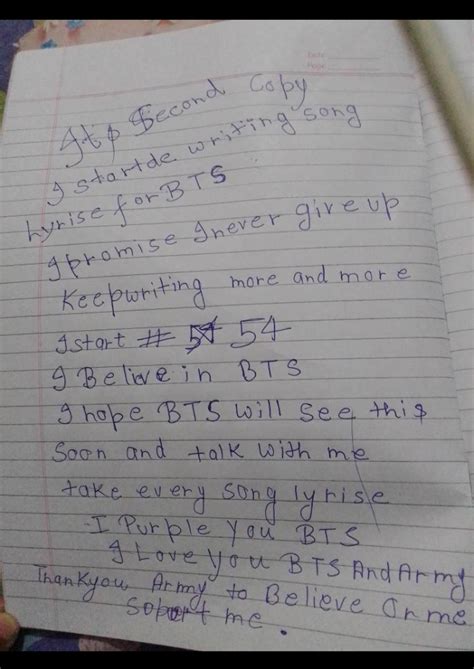 Date
Page
Its Second Copy
I startde writing song
Lyrise for BTS
I promise I never give up
Keepwriting more and more
I start # 54
I Belive in BTS
I hope BTS will see this
Soon and talk with me
take every song lyrise
-I Purple You BTS
I Love You BTS And Army
Thankyou Army to Believe On me
Soport me.